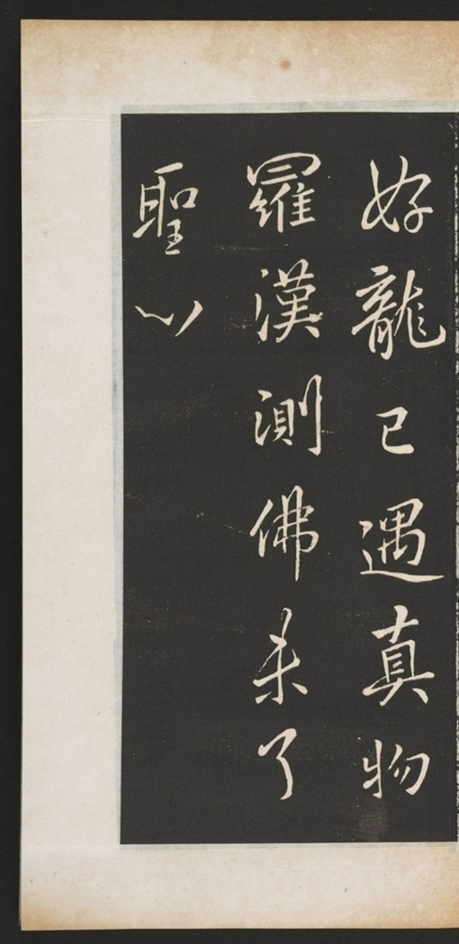 好龍已遇真物
羅漢測佛未了
聖心